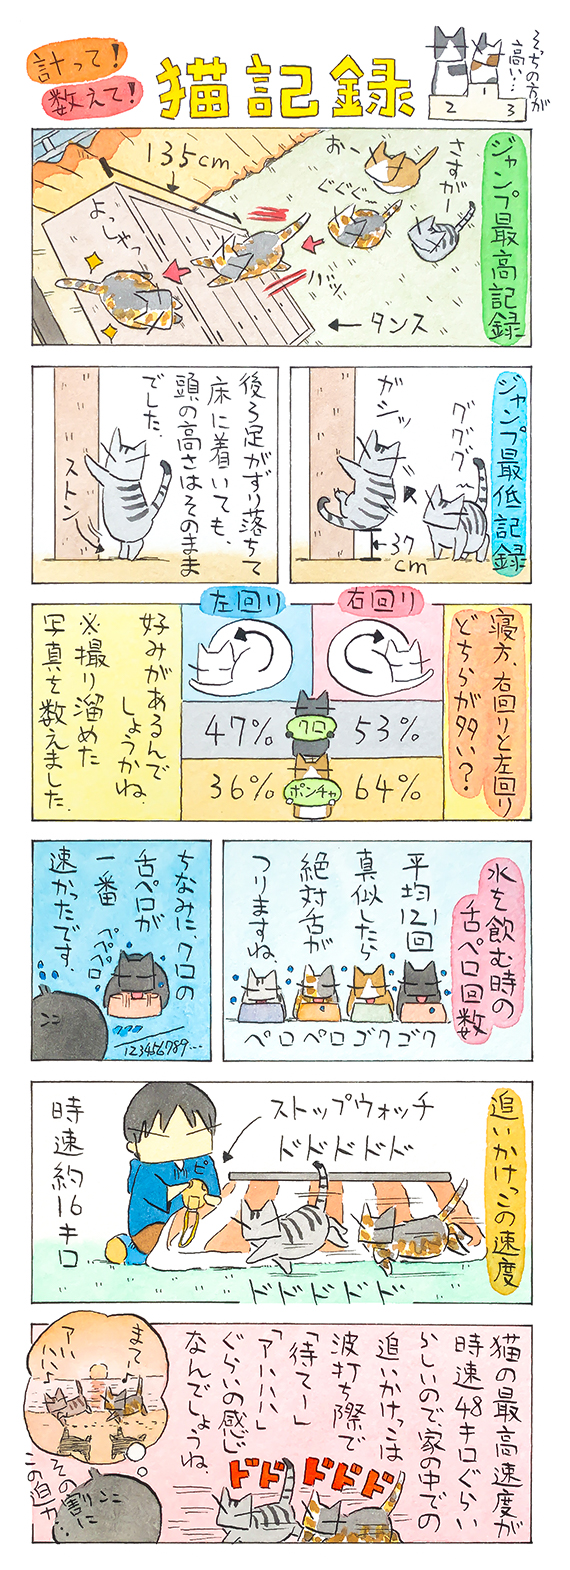 計って！
数えて！
猫記録
そっちの方が
高い…
2
3
ジャンプ最高記録
さすがー
おー
ぐぐぐ〜
135cm
ハッ
よっしゃっ
←タンス
ジャンプ最低記録
グググ
ガシッ
37
cm
後ろ足がずり落ちて
床に着いても、
頭の高さはそのまま
でした。
ストン
寝方、右回りと左回り
どちらが多い？
右回り
左回り
クロ
47%
53%
ポンチャ
36%
64%
好みがあるんで
しょうかね。
※撮り溜めた
写真を数えました。
水を飲む時の
舌ペロ回数
平均121回
真似したら
絶対舌が
つりますね。
ペロペロゴクゴク
ちなみに、クロの
舌ペロが
一番
速かったです。
ペペペロ
123456789…
追いかけっこの速度
ストップウォッチ
ドドドドド
ピ
ドドドドド
時速約16キロ
猫の最高速度が
時速48キロぐらい
らしいので、家の中での
追いかけっこは
波打ち際で
「待てー」
「アハハハ」
ぐらいの感じ
なんでしょうね。
ドドドドド
まてー
アハハハ
その割に
この迫力…